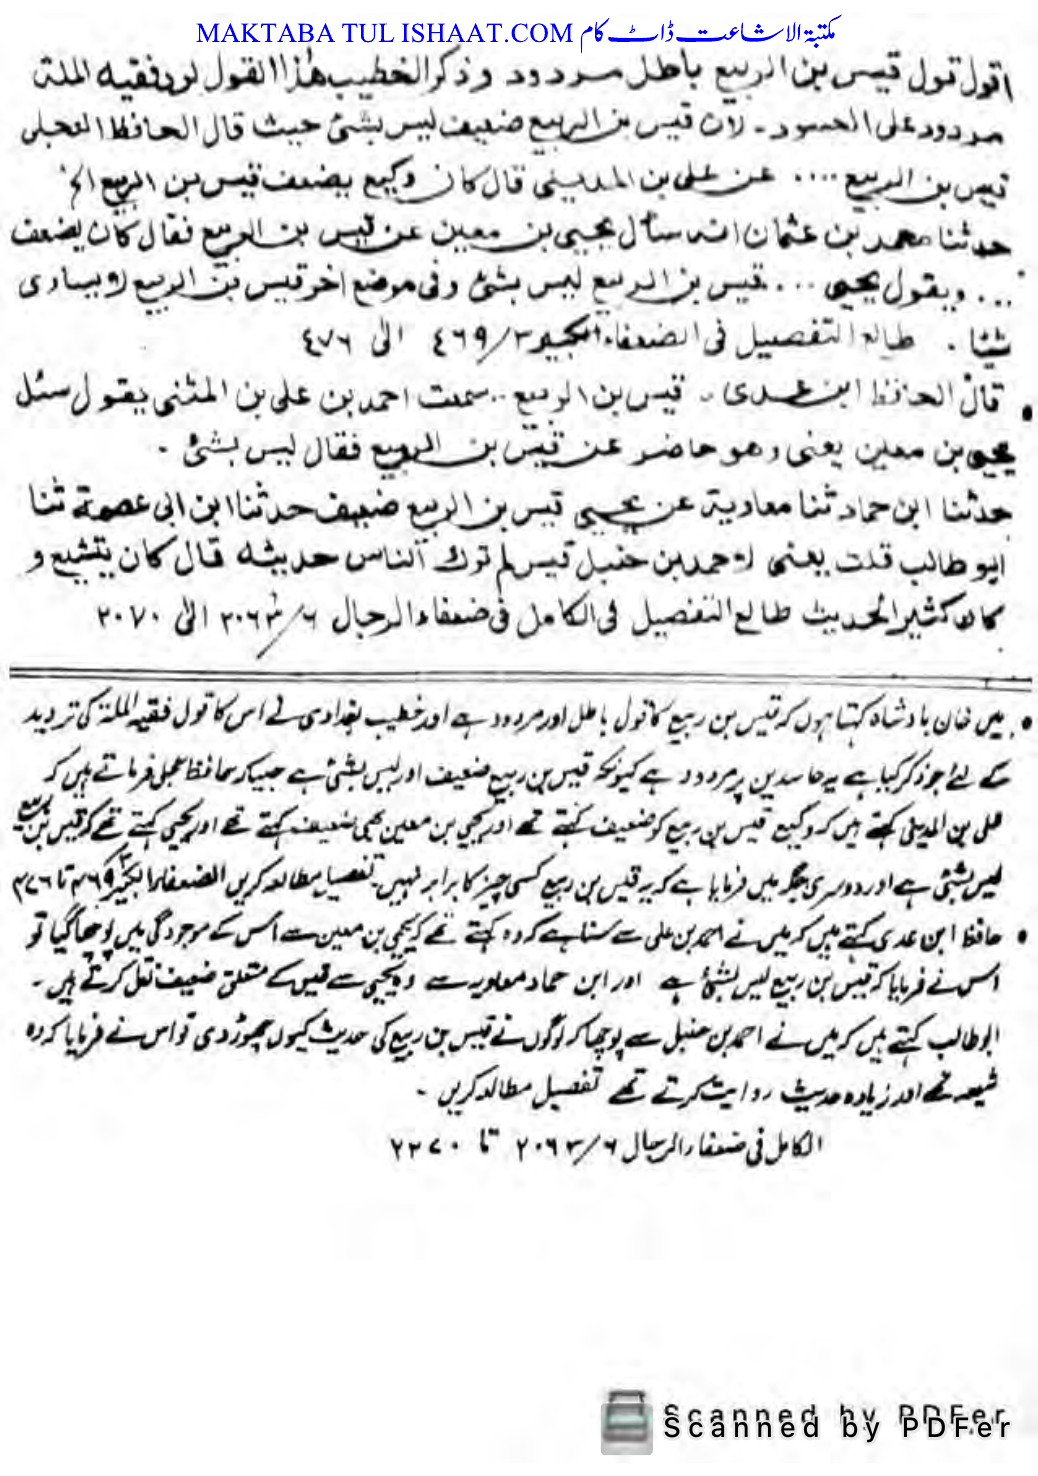 MAKTABA TUL ISHAAT.COM مکتبۃ الاشاعت ڈاٹ کام
اقول قول قيس بن الربيع باطل مردود وذكر الخطيب هذا القول لرد فقيه الملة
مردود على الحسود۔ لان قيس بن الربيع ضعيف ليس بشئ حيث قال الحافظ العجلى
قيس بن الربيع .... عن على بن المديني قال كان وكيع يضعف قيس بن الربيع الخ
حدثنا محمد بن عثمان انه سأل يحيى بن معين عن قيس بن الربيع فقال كان يضعف
... ويقول يحيى ... قيس بن الربيع ليس بشئ وفى موضع اخر قيس بن الربيع لا يساوى
شيئا . طالع التفصيل فى الضعفاء الكبير ٣/٤٦٩ الى ٤٧٦
• قال الحافظ ابن عدى . قيس بن الربيع .. سمعت احمد بن على بن المثنى يقول سئل
يحيى بن معين يعنى وهو حاضر عن قيس بن الربيع فقال ليس بشئ .
حدثنا ابن حماد ثنا معاوية عن يحيى قيس بن الربيع ضعيف حدثنا ابن ابى عصمة ثنا
ابو طالب قلت يعنى لاحمد بن حنبل قيس لم ترك الناس حديثه قال كان يتشيع و
كان كثير الحديث طالع التفصيل فى الكامل فى ضعفاء الرجال ٦/٢٠٦٣ الى ٢٠٧٠
• میں خان بادشاہ کہتا ہوں کہ قیس بن ربیع کا قول باطل اور مردود ہے اور خطیب بغدادی نے اس کا قول فقیہ الملۃ کی تردید
کے لئے جو ذکر کیا ہے یہ حاسدین پر مردود ہے کیونکہ قیس بن ربیع ضعیف اور لیس بشئ ہے جیسا کہ حافظ عجلی فرماتے ہیں کہ
علی بن المدینی کہتے ہیں کہ وکیع قیس بن ربیع کو ضعیف کہتے تھے اور یحیی بن معین بھی ضعیف کہتے تھے اور یحیی کہتے تھے کہ قیس بن ربیع
لیس بشئ ہے اور دوسری جگہ میں فرمایا ہے کہ یہ قیس بن ربیع کسی چیز کا برابر نہیں۔ تفصیل مطالعہ کریں الضعفاء الکبیر ۳/۴۶۹ تا ۴۷۶
• حافظ ابن عدی کہتے ہیں کہ میں نے احمد بن علی سے سنا ہے کہ وہ کہتے تھے کہ یحیی بن معین سے اس کے موجودگی میں پوچھا گیا تو
اس نے فرمایا کہ قیس بن ربیع لیس بشئ ہے اور ابن حماد معاویہ سے وہ یحیی سے قیس کے متعلق ضعیف نقل کرتے ہیں ۔
ابو طالب کہتے ہیں کہ میں نے احمد بن حنبل سے پوچھا کہ لوگوں نے قیس بن ربیع کی حدیث کیوں چھوڑ دی تو اس نے فرمایا کہ وہ
شیعہ تھے اور زیادہ حدیث روایت کرتے تھے تفصیل مطالعہ کریں ۔
الکامل فی ضعفاء الرجال ۶/۲۰۶۳ تا ۲۲۷۰
Scanned by PDFer
Scanned by PDFer